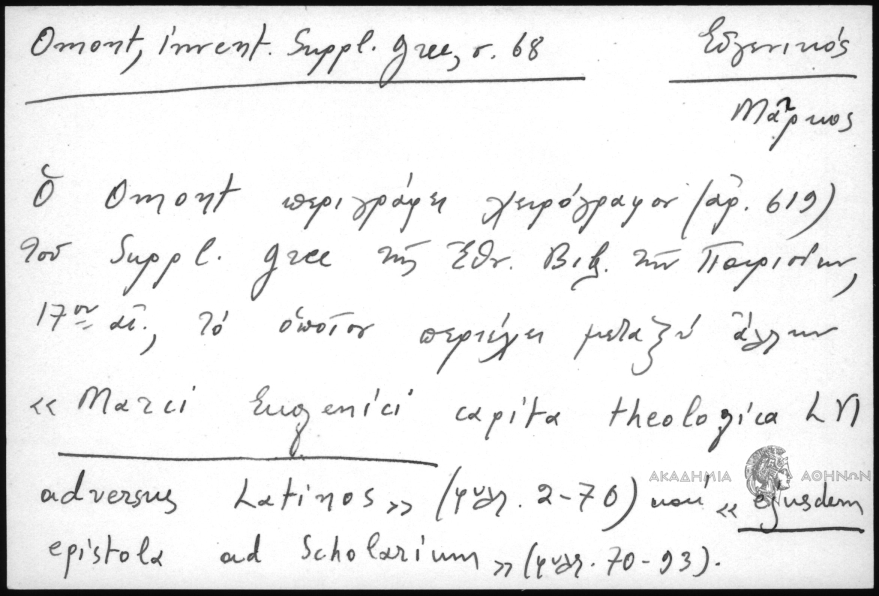 Omont, invent. Suppl. grec, σ. 68 Εὐγενικός
Μᾶρκος
Ὁ Omont περιγράφει χειρόγραφον (ἀρ. 619)
τοῦ Suppl. grec τῆς Ἐθν. Βιβ. τῶν Παρισίων,
17ου αἰ., τὸ ὁποῖον περιέχει μεταξὺ ἄλλων
« Marci Eugenici capita theologica LVI
adversus Latinos » (φυλλ. 2-70) καὶ « ejusdem
ΑΚΑΔΗΜΙΑ ΑΘΗΝΩΝ
epistola ad Scholarium » (φυλλ. 70-93).